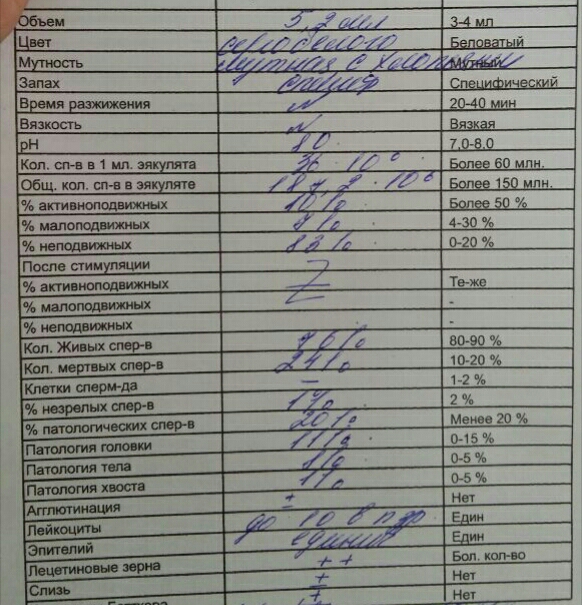 Объем 5,2 мл 3-4 мл
Цвет серобелого Беловатый
Мутность мутная с хлопьями Мутный
Запах специф Специфический
Время разжижения N 20-40 мин
Вязкость N Вязкая
pH 8,0 7,0-8,0
Кол. сп-в в 1 мл. эякулята 36 · 10⁶ Более 60 млн.
Общ. кол. сп-в в эякуляте 187,2 · 10⁶ Более 150 млн.
% активноподвижных 10% Более 50 %
% малоподвижных 7% 4-30 %
% неподвижных 83% 0-20 %
После стимуляции
% активноподвижных Те-же
% малоподвижных -
% неподвижных -
Кол. Живых спер-в 76% 80-90 %
Кол. мертвых спер-в 24% 10-20 %
Клетки сперм-да – 1-2 %
% незрелых спер-в 1% 2 %
% патологических спер-в 20% Менее 20 %
Патология головки 11% 0-15 %
Патология тела 8% 0-5 %
Патология хвоста 1% 0-5 %
Агглютинация ± Нет
Лейкоциты до 10 в п/зр Един
Эпителий единич Един
Лецетиновые зерна + + Бол. кол-во
Слизь + Нет
+ Нет